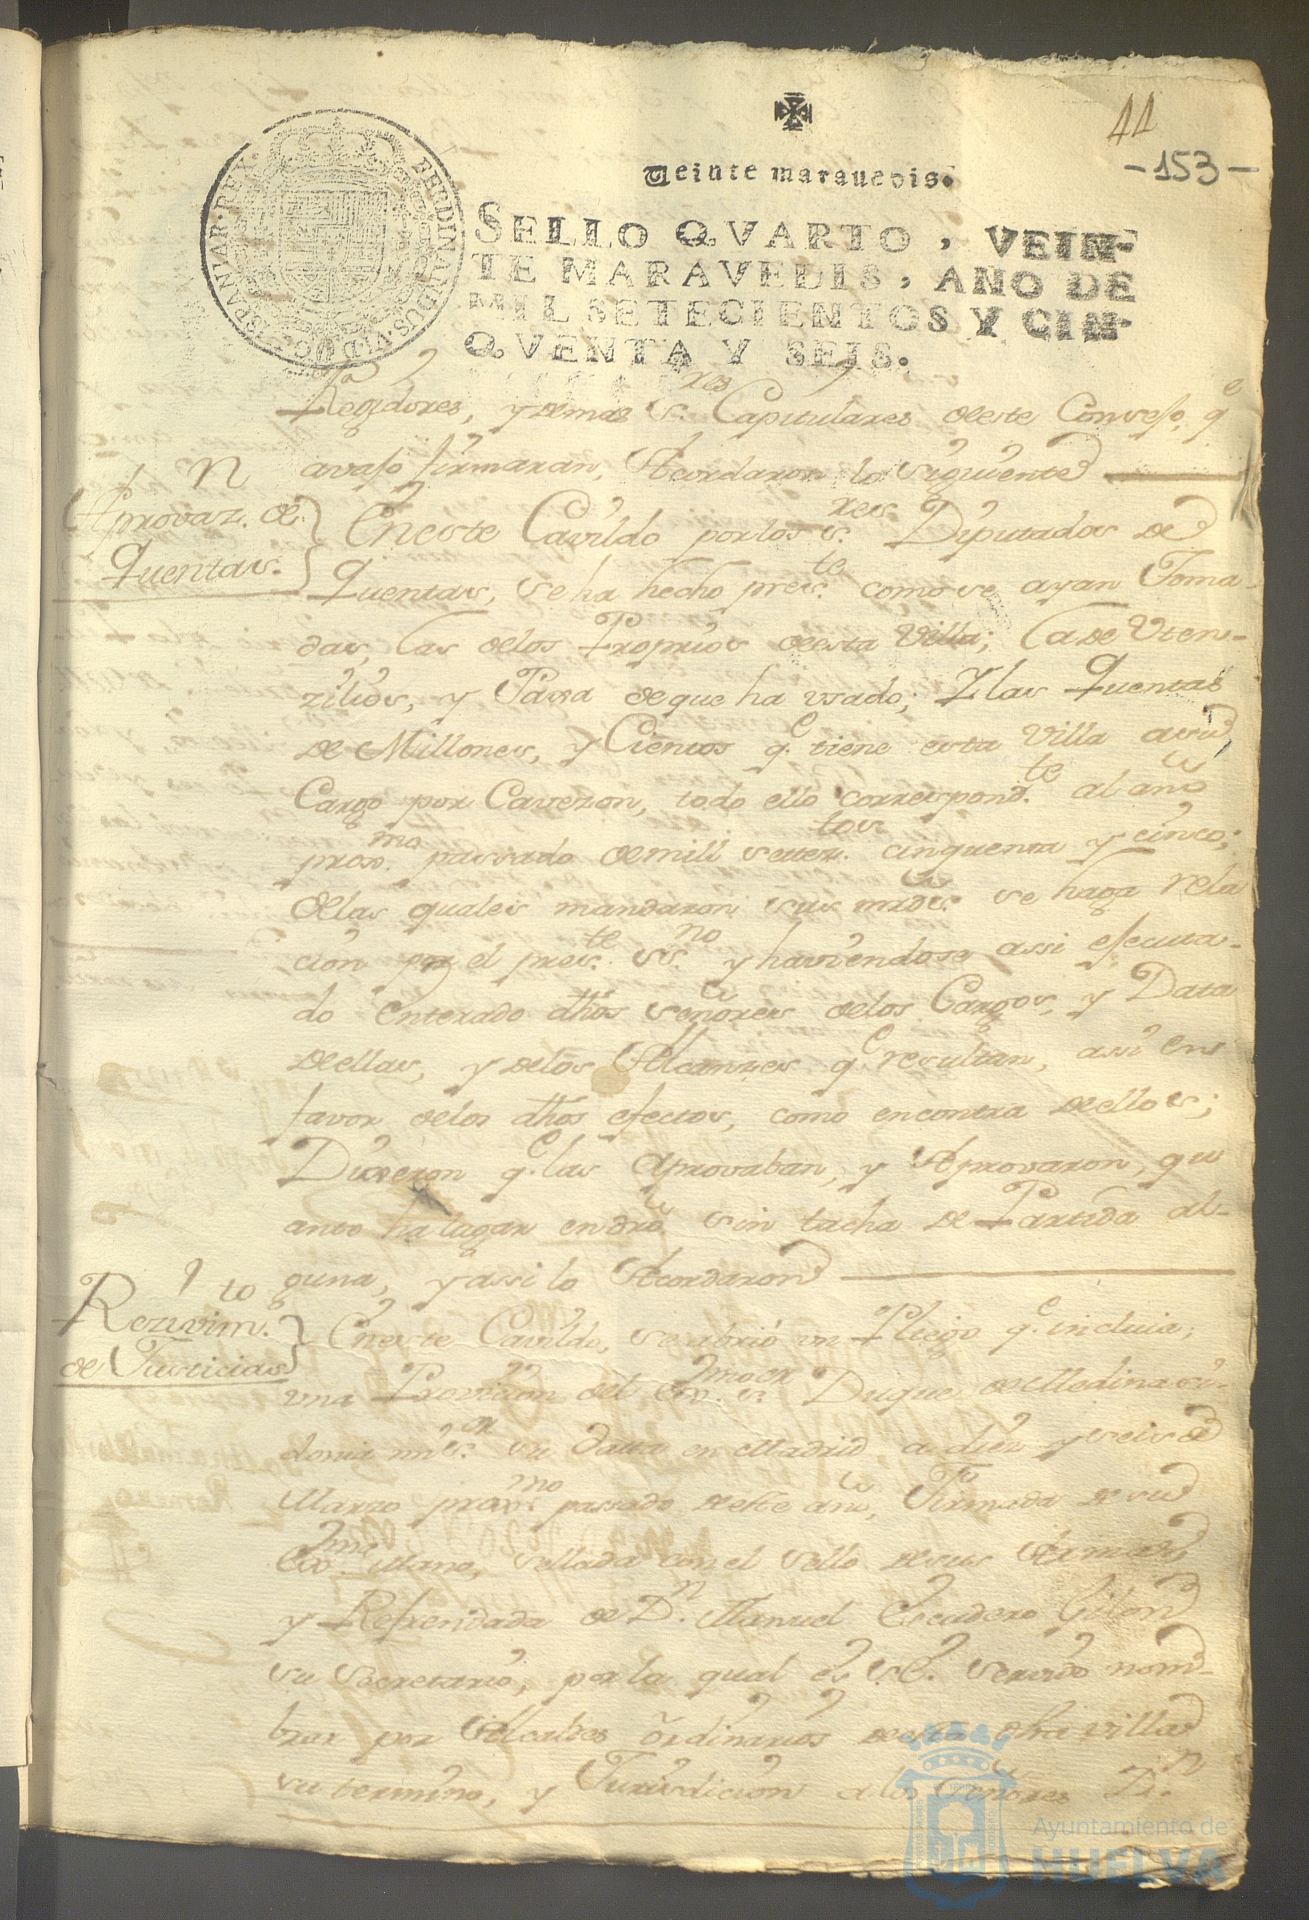 44
-153-
Veinte marauedis.
SELLO QVARTO, VEIN-
TE MARAVEDIS, AÑO DE
MIL SETECIENTOS Y CIN-
QVENTA Y SEIS.
FERDINANDUS·VI·D·G·HISPANIAR·REX·
Regidores, y demas s.res Capitulares deeste Consejo, q.e
avajo firmaran, Acordaron lo siguiente
Aprovaz.n de
Quentas.
Eneste Cavildo por los s.res Diputados de
Quentas, se ha hecho pres.te como se ayan Toma-
das, las delos Proprios deesta Villa; la de Vten-
zilios, y Paxa de que ha vsado; Y las Quentas
de Millones, y Cientos q.e tiene esta Villa asu
Cargo por Cavezon, todo ello correspond.te al año
prox.mo passado demill settez.tos cinquenta y cinco;
delas quales mandaron sus mrds. se haga rela
cion por el pres.te ss.no y haviendose assi efecuta-
do enterado dhos señores delos Cargos, y Data
deellas, y delos Alcanzes q.e resultan, assi en
favor delos dhos efectos, como encontra deellos;
Dixeron q.e las Aprovaban, y Aprovaron, qu
anto ha lugar endro. sin tacha de Partida al-
guna, y assi lo Acordaron
Rezivim.to
de Justicias
Eneste Cavildo, se abrió un Pliego q.e incluia,
vna Provision del Ex.mo s.or Duque de Medina si-
donia mi s.or su datta en Madrid a diez y seis de
Marzo prox.mo passado deeste año, Firmada de su
Ex.ma Mano, sellada con el sello de sus Armas,
y Refrendada de D.n Manuel Escudero Gilon
su Secretario, por la qual es S.E. servido nom-
brar por Alcaldes ordinarios deesta dha villa
su termino, y Jurisdicion a los Señores D.n
Ayuntamiento de
HUELVA